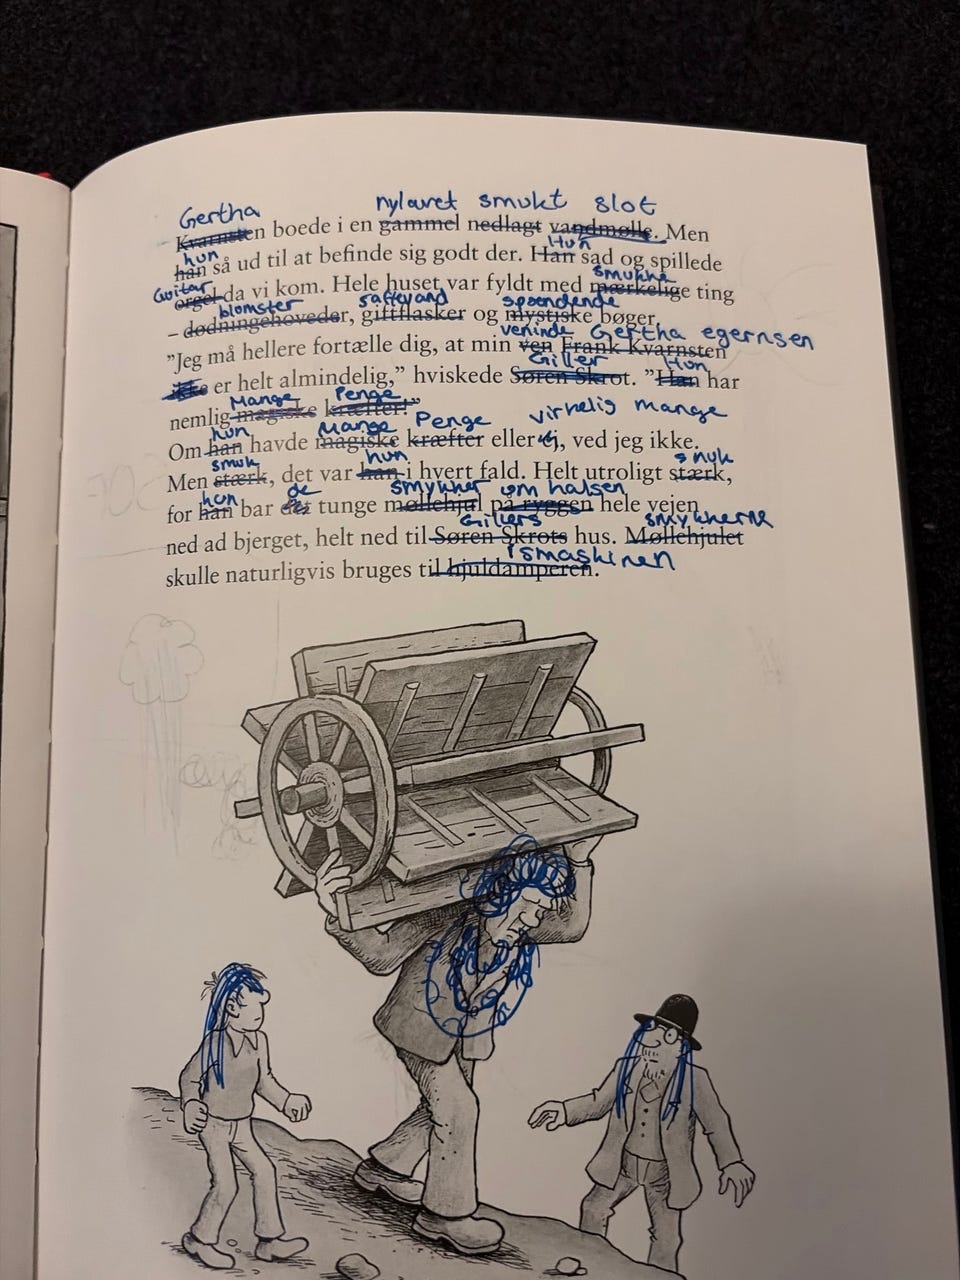 Gertha nylavet smukt slot
Kvarnsten boede i en gammel nedlagt vandmølle. Men
hun Hun
han så ud til at befinde sig godt der. Han sad og spillede
Guitar smukke
orgel da vi kom. Hele huset var fyldt med mærkelige ting
blomster saftevand spændende
– dødningehoveder, giftflasker og mystiske bøger.
veninde Gertha egernsen
”Jeg må hellere fortælle dig, at min ven Frank Kvarnsten
Giller Hun
ikke er helt almindelig,” hviskede Søren Skrot. ”Han har
Mange Penge
nemlig magiske kræfter!”
hun Mange Penge virkelig mange
Om han havde magiske kræfter eller ej, ved jeg ikke.
smuk hun smuk
Men stærk, det var han i hvert fald. Helt utroligt stærk,
hun de smykker om halsen
for han bar det tunge møllehjul på ryggen hele vejen
Gillers smykkerne
ned ad bjerget, helt ned til Søren Skrots hus. Møllehjulet
ismaskinen
skulle naturligvis bruges til hjuldamperen.